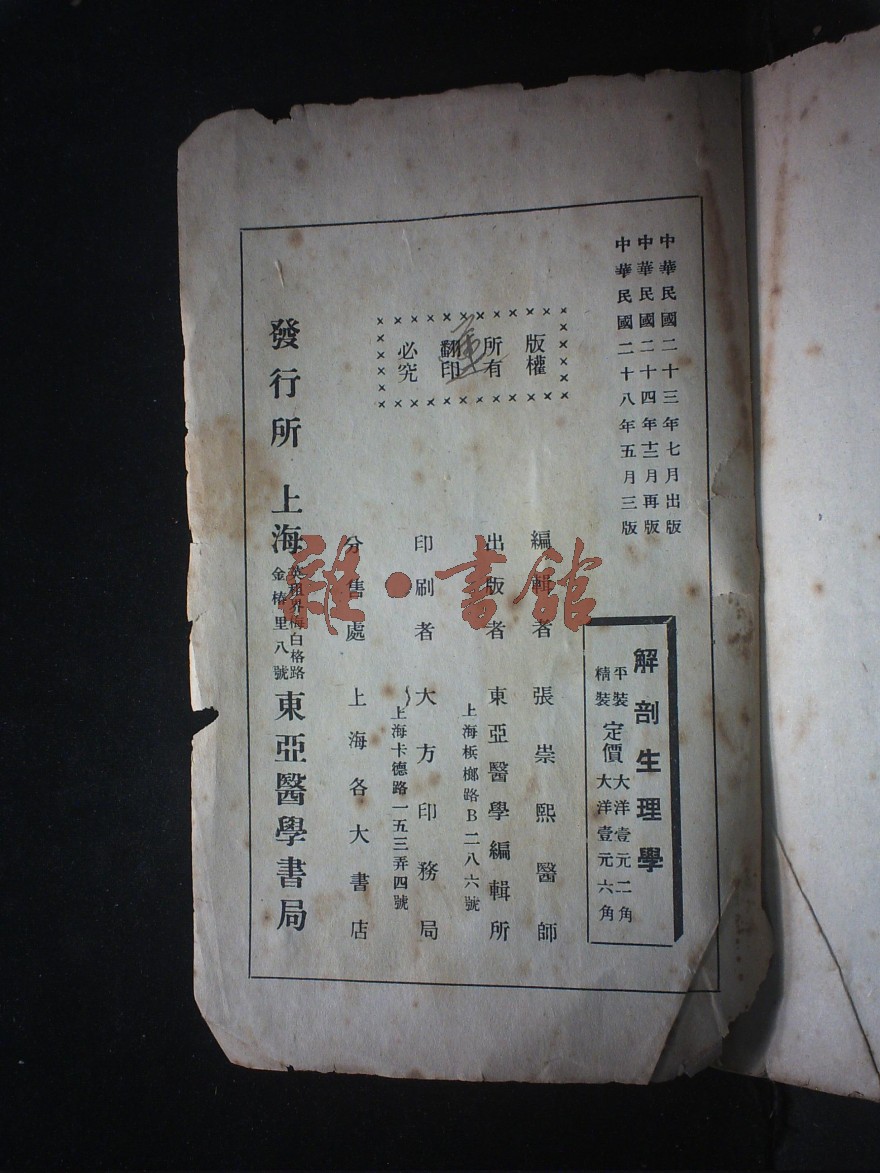 中華民國二十三年七月出版
中華民國二十四年十二月再版
中華民國二十八年五月三版
解剖生理學
平裝 定價 大洋壹元二角
精裝 大洋壹元六角
版權
所有
翻印
必究
編輯者 張崇熙醫師
出版者 東亞醫學編輯所
上海檳榔路B二八六號
印刷者 大方印務局
上海卡德路一五三弄四號
分售處 上海各大書店
發行所 上海 英租界梅白格路
金椿里八號 東亞醫學書局
雜·書館